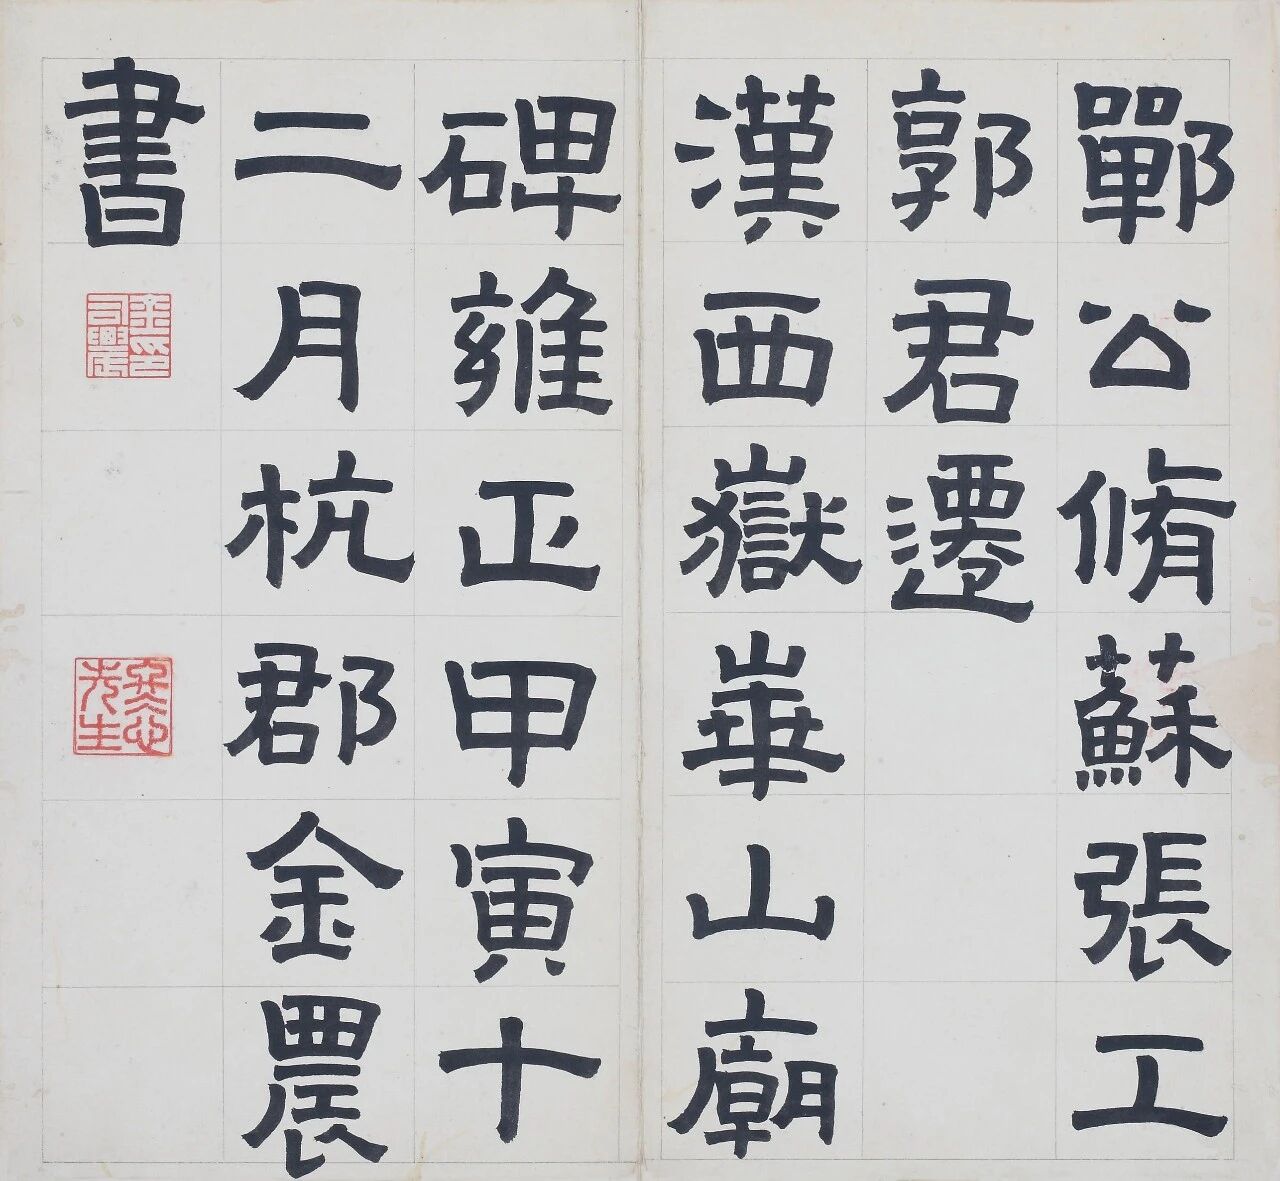 鄲公脩蘇張工
郭君遷
漢西嶽華山廟
碑雍正甲寅十
二月杭郡金農
書
金吉金印
先生